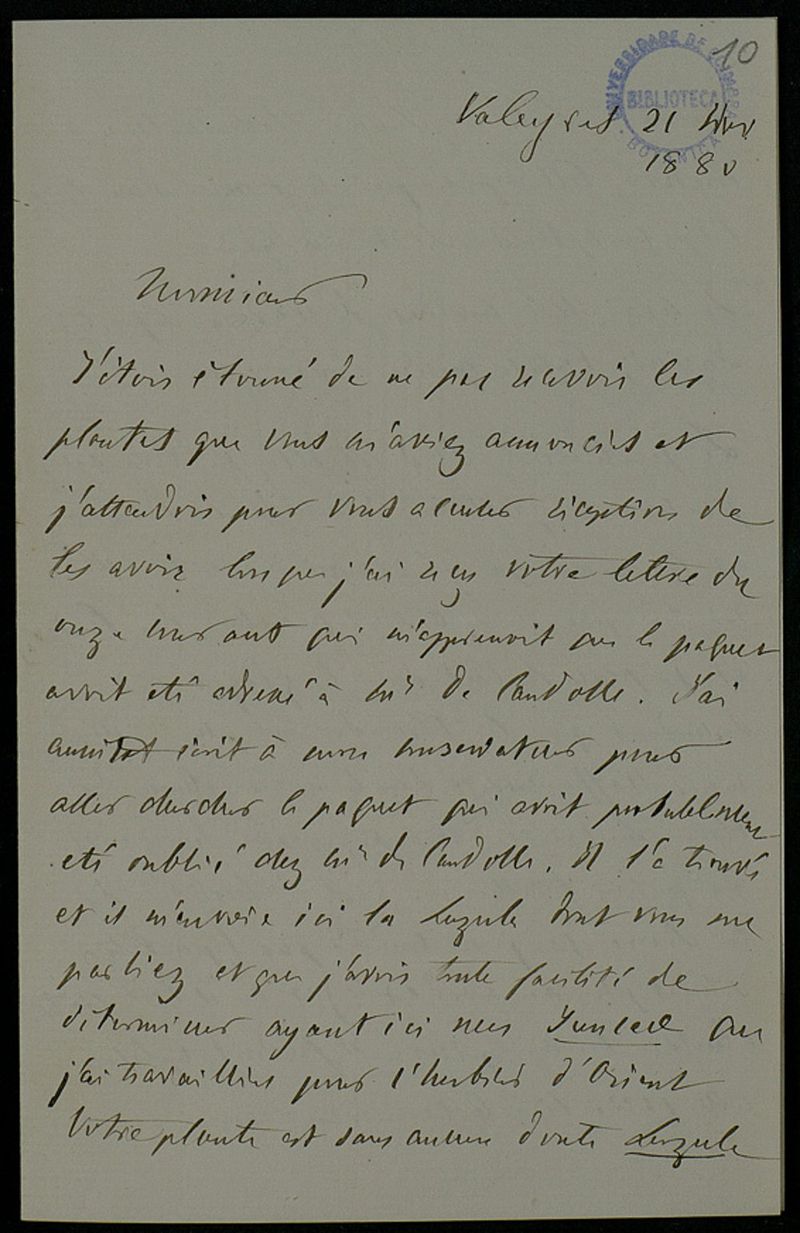 10
UNIVERSIDADE DE COIMBRA
BIBLIOTECA
BOTANICA
Valeyres 21
1880
Monsieur
J'étois étonné de ne pas recevoir les
plantes que vous m'aviez annoncées et
j'attendois pour vous accuser réception de
les avoir lorsque j'ai reçu votre lettre du
onze courant qui m'apprenoit que le paquet
avoit été adressé à Mr De Candolle. J'ai
aussitot écrit à mon conservateur pour
aller chercher le paquet qui avoit probablement
été oublié chez Mr de Candolle. Il l'a trouvé
et il m'envoie ici la Luzula dont vous me
parliez et que j'avois toute facilité de
déterminer ayant ici mes Juncées que
j'ai travaillées pour l'herbier d'Orient
Votre plante est sans aucun doute Luzula